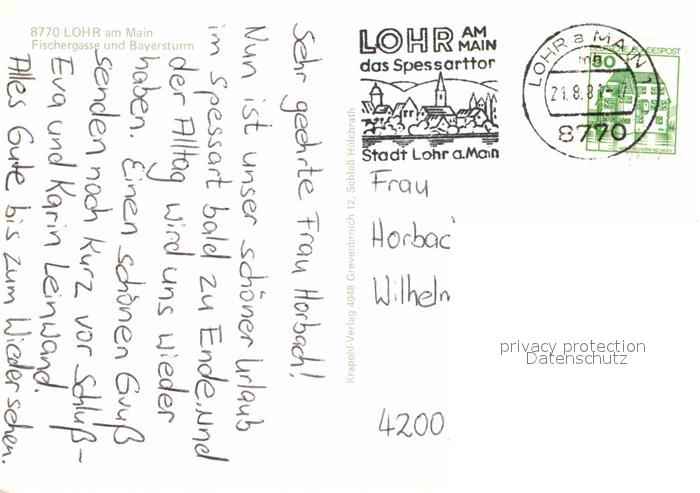 8770 LOHR am Main
Fischergasse und Bayersturm
Sehr geehrte Frau Horbach!
Nun ist unser schöner Urlaub
im Spessart bald zu Ende, und
der Alltag wird uns wieder
haben. Einen schönen Gruß
senden noch kurz vor Schluß-
Eva und Karin Leinwand.
Alles Gute bis zum Wiedersehen.
Krapohl-Verlag 4048 Grevenbroich 12, Schloß Hülchrath
LOHR AM MAIN
das Spessarttor
Stadt Lohr a. Main
LOHR a MAIN 1
mb
21.8.8
8770
DEUTSCHE BUNDESPOST
50
Frau
Horbac
Wilheln
4200
privacy protection
Datenschutz